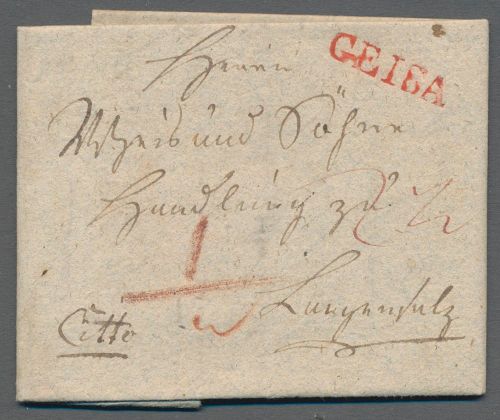 GEISA
Herrn
Weis und Söhne
Handlung zu
Langensalz
Citto